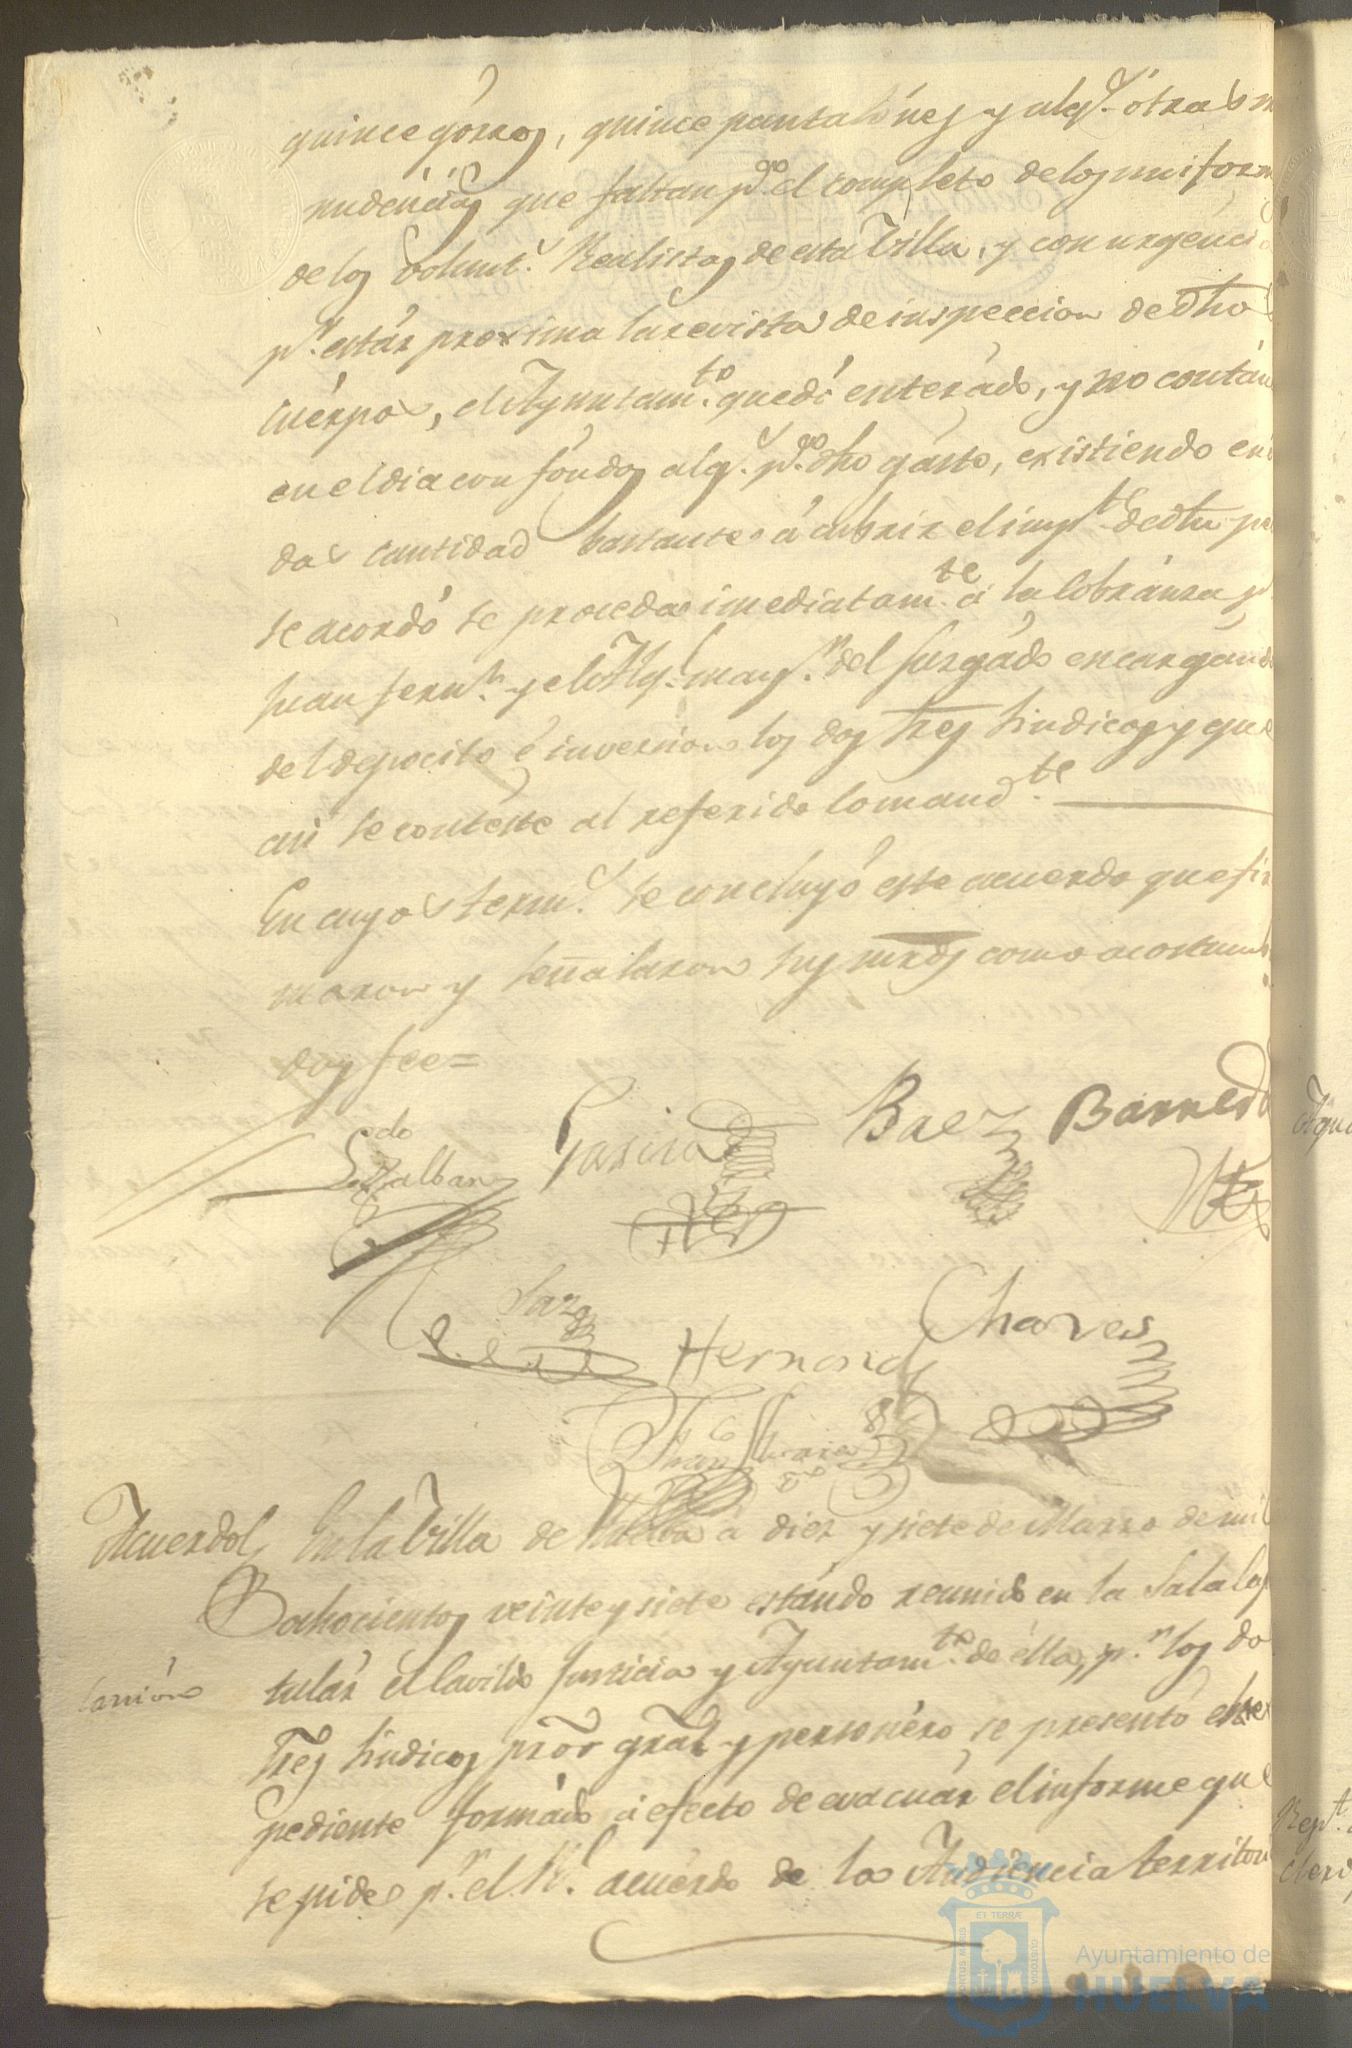 quince gorros, quince pantalónes y alg.s ótras m
nudéncias que faltan p.a el completo de los uniform
de los Volunt.s Realistas de esta Villa, y con urgéncia
p.r estár proxima la revista de inspeccion de dho
cuérpo, el Ayuntam.to quedó enterádo, y no contán
en el dia con fóndos alg.s p.a dho gásto, existiendo en
da cantidad bastante á cubrir el imp.te de dha
se acordó se proceda imediatam.te á la cobránza p.r
Juan Fern.z y el Alg.l may.r del Juzgádo encargánd
del deposito é inversion los dos Sres Sindicos y que
asi se contéste al referido Comand.te
En cuyos term.s se concluyó este acuerdo que fir
maron y señalaron sus mrds como acostumb
doy fee=
Ldo Zalban
Garcia
Baez
Barreda
Saz
Hernand
Chaves
Acuerdo En la Villa de Huelva á diez y siete de Marzo de mil
Ochocientos veinte y siete estándo reunido en la Sala Capi
tulár el Cavildo Justicia y Ayuntam.to de élla, p.r los do
Sres Sindicos prór grál y personéro se presentó el ex
pediente formádo á efecto de evacuár el informe que
se pide p.r el R.l acuérdo de la Audiéncia territori
Ayuntamiento de
HUELVA